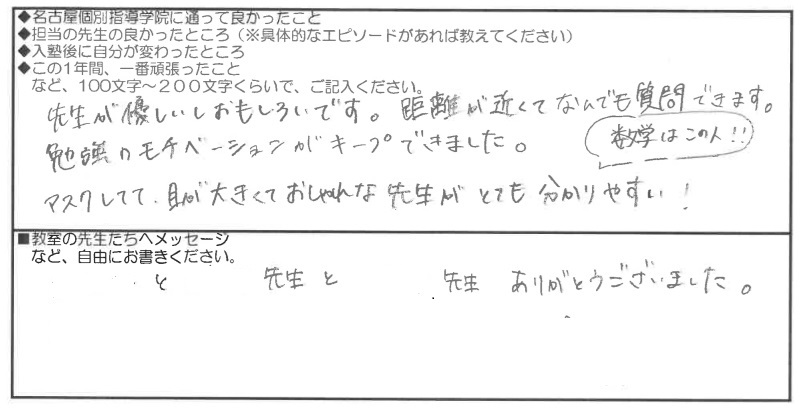 ◆名古屋個別指導学院に通って良かったこと
◆担当の先生の良かったところ（※具体的なエピソードがあれば教えてください）
◆入塾後に自分が変わったところ
◆この1年間、一番頑張ったこと
など、100文字～200文字くらいで、ご記入ください。
先生が優しいしおもしろいです。距離が近くてなんでも質問できます。
勉強のモチベーションがキープできました。
数学はこの人!!
マスクしてて、目が大きくておしゃれな先生がとても分かりやすい!
■教室の先生たちへメッセージ
など、自由にお書きください。
と 先生と 先生 ありがとうございました。